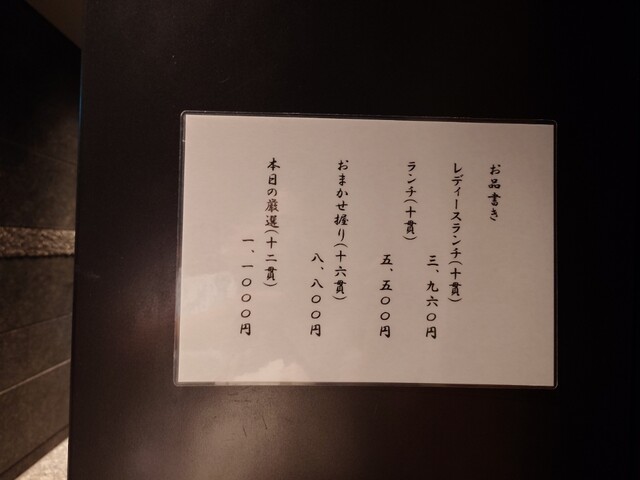 お品書き
レディースランチ(十貫)
三、九六〇円
ランチ(十貫)
五、五〇〇円
おまかせ握り(十六貫)
八、八〇〇円
本日の厳選(十二貫)
一、一〇〇〇円